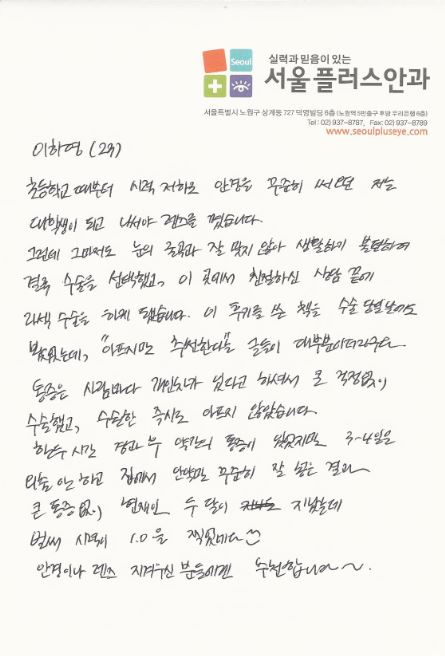 Seoul
실력과 믿음이 있는
서울플러스안과
서울특별시 노원구 상계동 727 덕영빌딩 6층 (노원역 5번출구 후방 우리은행 6층)
Tel : 02) 937-8787, Fax: 02) 937-8789
www.seoulpluseye.com
이하영 (29)
초등학교 때부터 시력 저하로 안경을 꾸준히 써오던 저는
대학생이 되고 나서야 렌즈를 꼈습니다.
그런데 그마저도 눈의 굴곡과 잘 맞지 않아 생활하기 불편하여
결국 수술을 선택했고, 이 곳에서 친절하신 상담 끝에
라섹 수술을 하게 됐습니다. 이 후기를 쓴 책을 수술 당일날에도
봤었는데, "아프지만 추천한다"는 글들이 대부분이더라구요
통증은 사람마다 개인차가 있다고 하셔서 큰 걱정없이
수술했고, 수술한 즉시도 아프지 않았습니다.
한두 시간 경과 후 약간의 통증이 있었지만 3-4일은
외출 안하고 집에서 안약만 꾸준히 잘 넣은 결과
큰 통증없이 현재는 두 달이 지났는데
벌써 시력이 1.0을 찍었네요
안경이나 렌즈 지겨우신 분들에겐 추천합니다~.